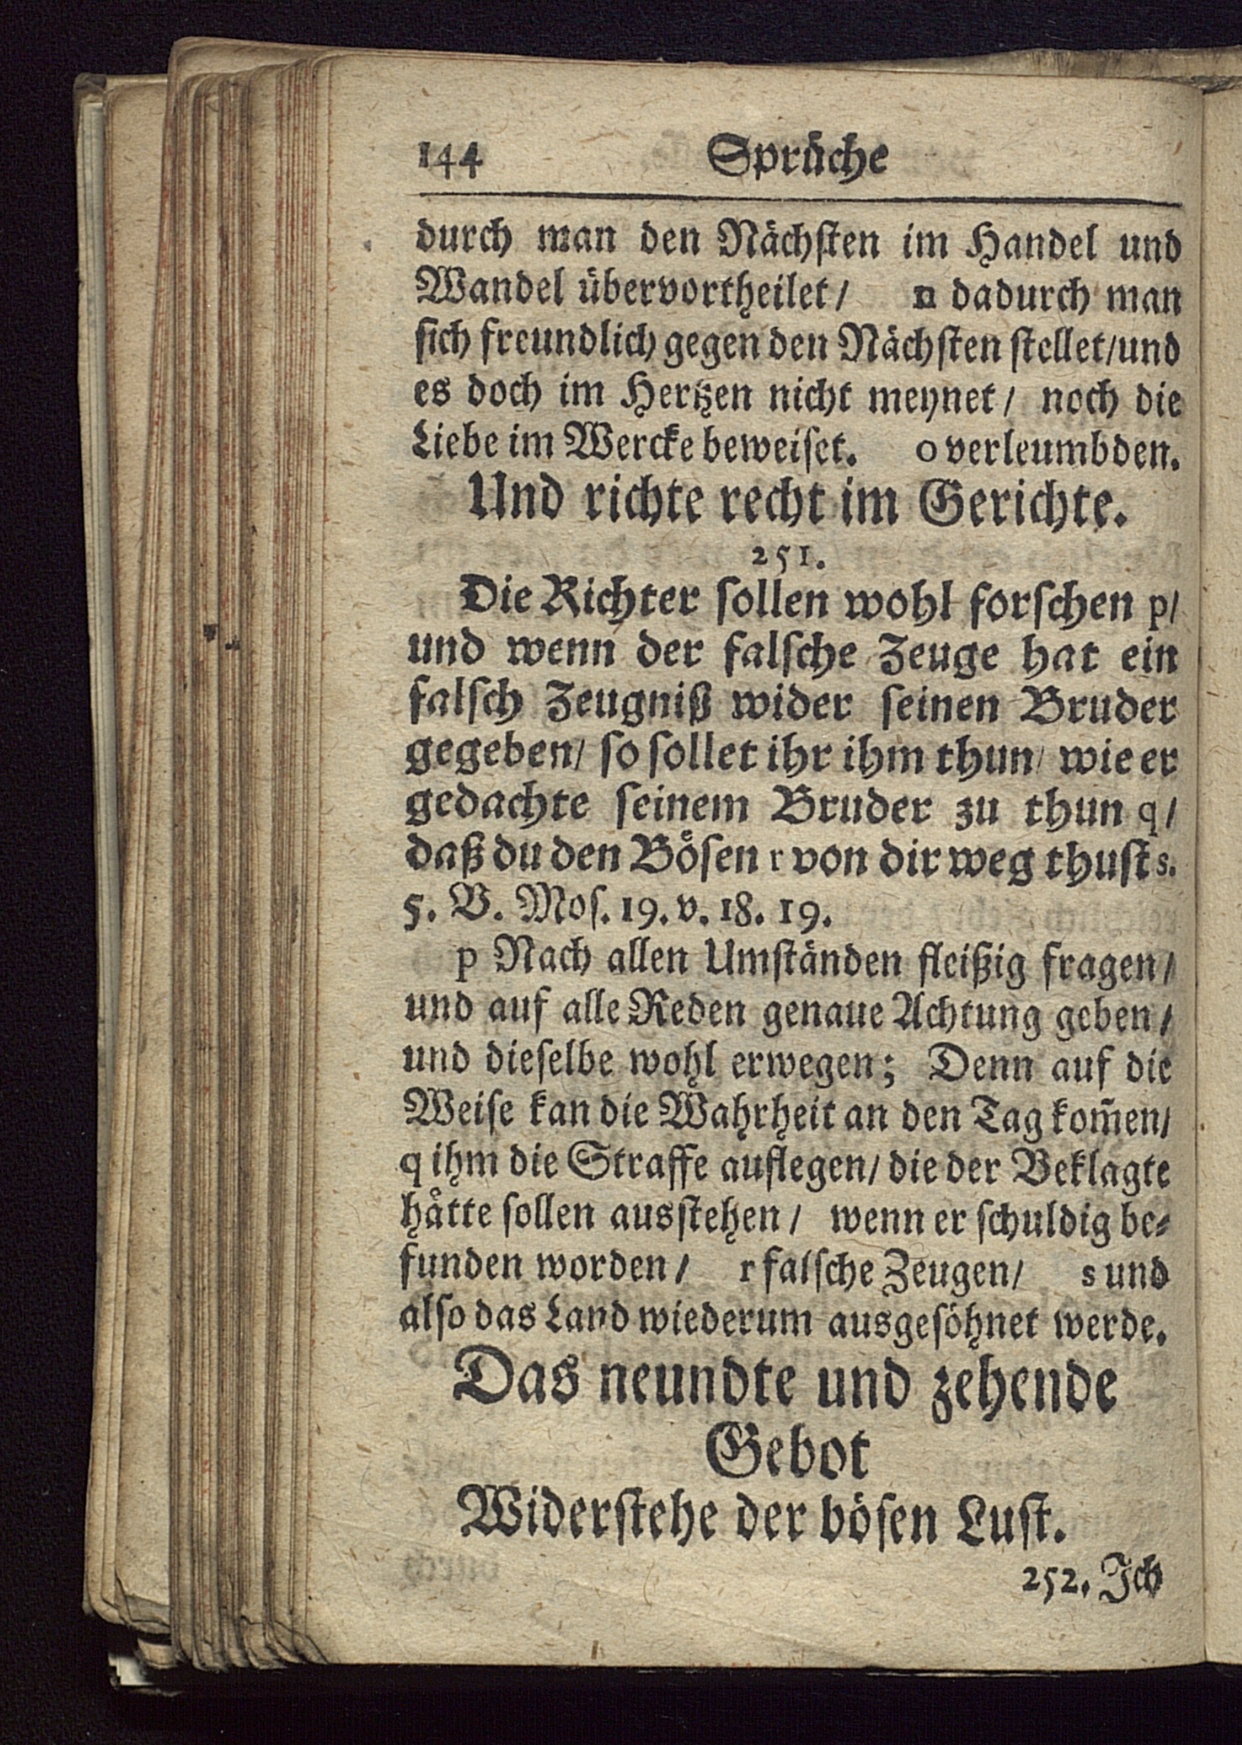 144 Sprüche
durch man den Nächsten im Handel und
Wandel übervortheilet/ n dadurch man
sich freundlich gegen den Nächsten stellet/und
es doch im Hertzen nicht meynet/ noch die
Liebe im Wercke beweiset. o verleumbden.
Und richte recht im Gerichte.
251.
Die Richter sollen wohl forschen p/
und wenn der falsche Zeuge hat ein
falsch Zeugniß wider seinen Bruder
gegeben/ so sollet ihr ihm thun/ wie er
gedachte seinem Bruder zu thun q/
daß du den Bösen r von dir weg thust s.
5. B. Mos. 19. v. 18. 19.
p Nach allen Umständen fleißig fragen/
und auf alle Reden genaue Achtung geben/
und dieselbe wohl erwegen; Denn auf die
Weise kan die Wahrheit an den Tag kom̃en/
q ihm die Straffe auflegen/ die der Beklagte
hätte sollen ausstehen/ wenn er schuldig be-
funden worden/ r falsche Zeugen/ s und
also das Land wiederum ausgesöhnet werde.
Das neundte und zehende
Gebot
Widerstehe der bösen Lust.
252. Ich